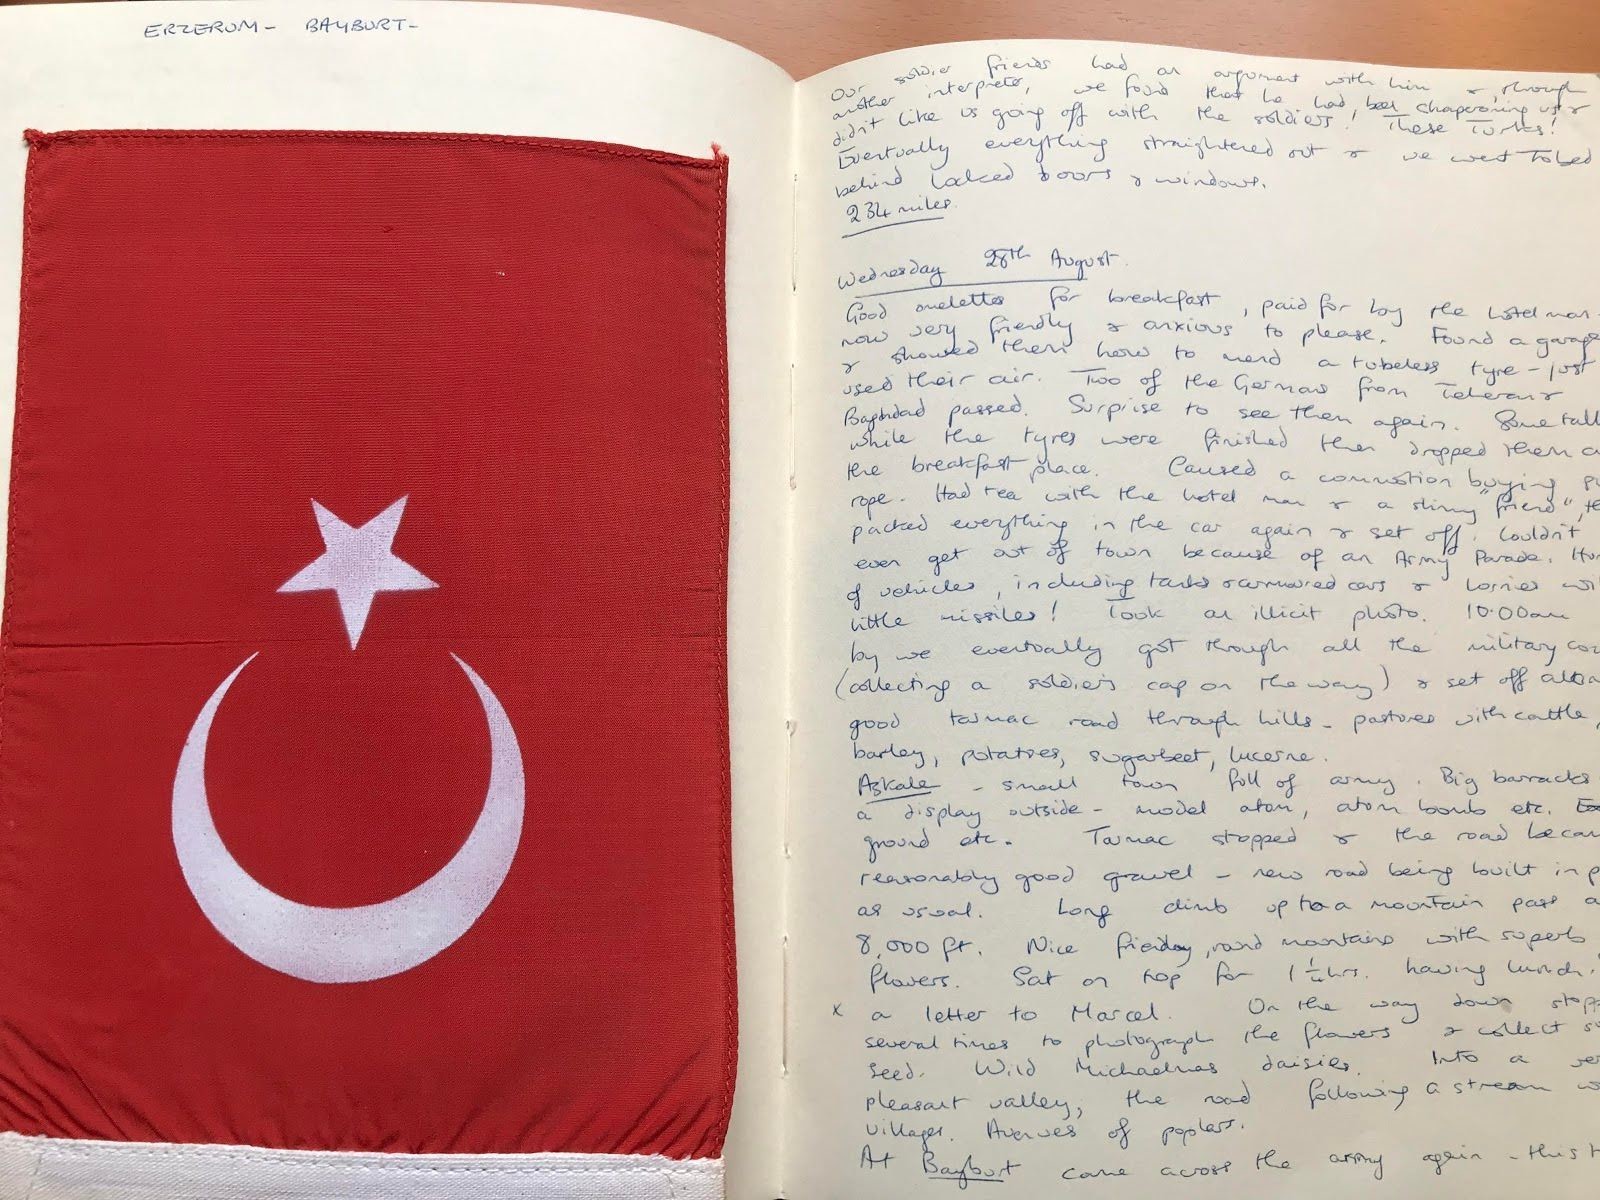 ERZERUM - BAYBURT -
Our soldier friends had an argument with him & through
another interpreter, we found that he had been chaperoning us &
didn't like us going off with the soldiers! These Turks!
Eventually everything straightened out & we went to bed
behind locked doors & windows.
234 miles.
Wednesday 28th August.
Good omelettes for breakfast, paid for by the hotel man -
now very friendly & anxious to please. Found a garage
& showed them how to mend a tubeless tyre - just
used their air. Two of the Germans from Teheran &
Baghdad passed. Surprise to see them again. Some talk
while the tyres were finished then dropped them a
the breakfast place. Caused a commotion buying
rope. Had tea with the hotel man & a skinny "friend", th
packed everything in the car again & set off. Couldn't
even get out of town because of an Army Parade. Hun
of vehicles, including tanks & armoured cars & lorries wi
little missiles! Took an illicit photo. 10.00am
by we eventually got through all the military co
(collecting a soldier's cap on the way) & set off
good tarmac road through hills - pastures with cattle,
barley, potatoes, sugarbeet, lucerne.
Aşkale - small town full of army. Big barracks
a display outside - model atom, atom bomb etc.
ground etc. Tarmac stopped & the road becam
reasonably good gravel - new road being built in p
as usual. Long climb up to a mountain pass a
8,000 ft. Nice friendly, round mountains with superb
flowers. Sat on top for 1¼ hrs. having lunch.
x a letter to Marcel. On the way down stopp
several times to photograph the flowers & collect s
seed. Wild Michaelmas daisies. Into a ver
pleasant valley, the road following a stream w
villages. Avenues of poplars.
At Bayburt came across the army again - this t